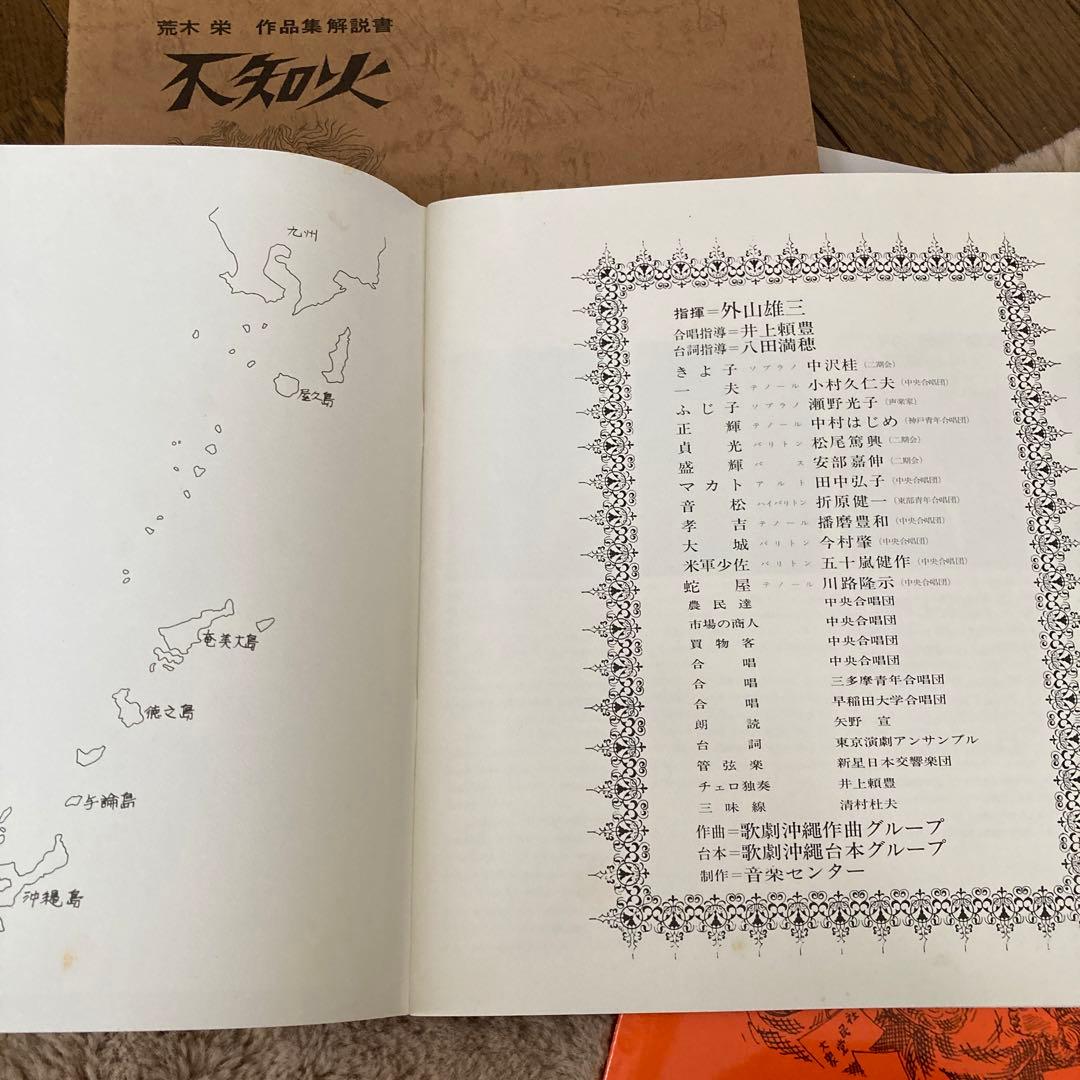 荒木 栄 作品集解説書
不知火
九州
屋久島
奄美大島
徳之島
与論島
沖縄島
指揮＝外山雄三
合唱指導＝井上頼豊
台詞指導＝八田満穂
きよ子 ソプラノ 中沢桂（二期会）
一夫 テノール 小村久仁夫（中央合唱団）
ふじ子 ソプラノ 瀬野光子（声楽家）
正輝 テノール 中村はじめ（神戸青年合唱団）
貞光 バリトン 松尾篤興（二期会）
盛輝 バス 安部嘉伸（二期会）
マカト アルト 田中弘子（中央合唱団）
音松 ハイバリトン 折原健一（東部青年合唱団）
孝吉 テノール 播磨豊和（中央合唱団）
大城 バリトン 今村肇（中央合唱団）
米軍少佐 バリトン 五十嵐健作（中央合唱団）
蛇屋 テノール 川路隆示（中央合唱団）
農民達 中央合唱団
市場の商人 中央合唱団
買物客 中央合唱団
合唱 中央合唱団
合唱 三多摩青年合唱団
合唱 早稲田大学合唱団
朗読 矢野 宣
台詞 東京演劇アンサンブル
管弦楽 新星日本交響楽団
チェロ独奏 井上頼豊
三味線 清村杜夫
作曲＝歌劇沖縄作曲グループ
台本＝歌劇沖縄台本グループ
制作＝音楽センター